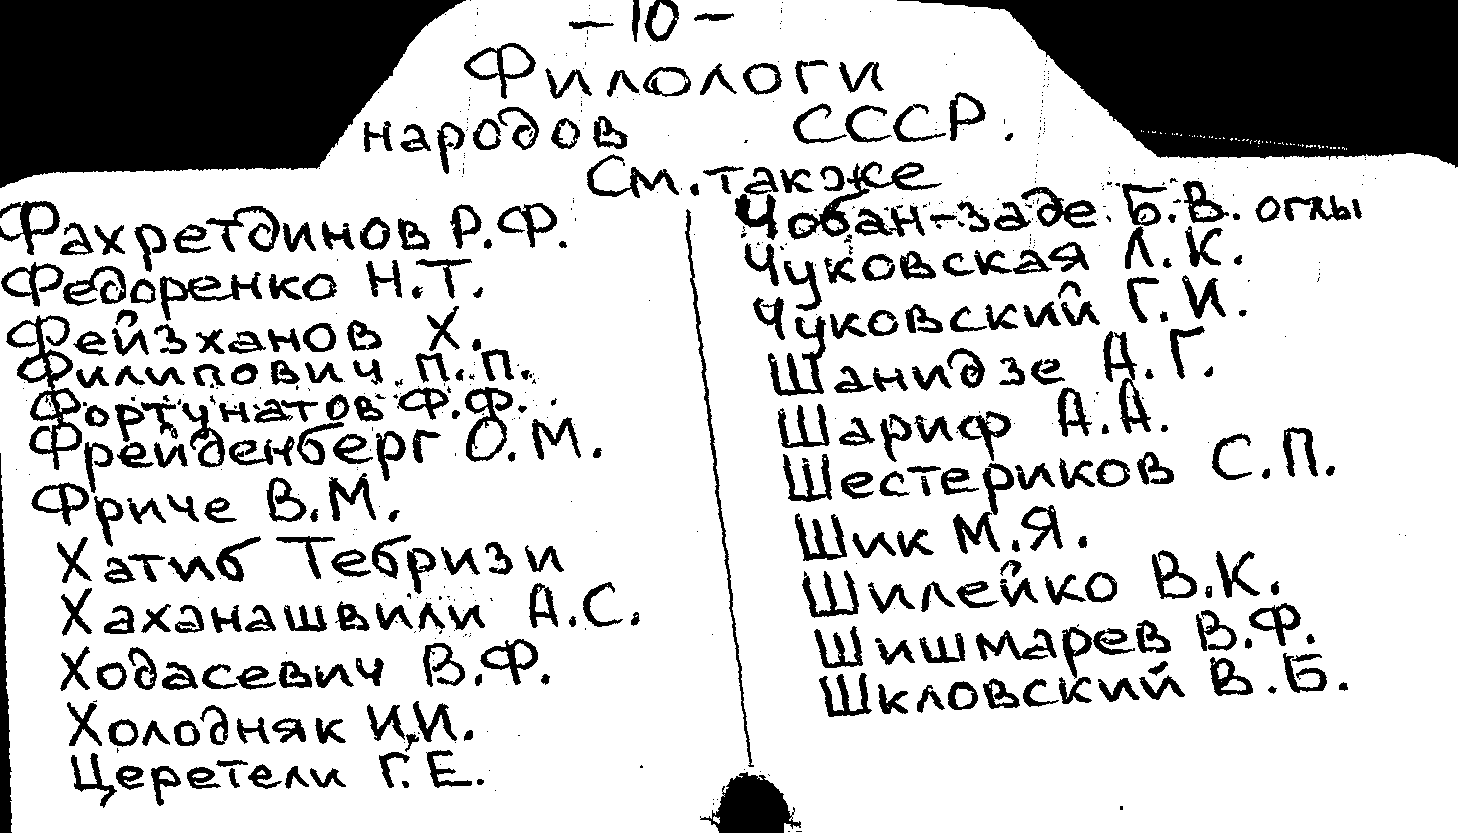 - 10 -
Филологи
народов СССР.
См. также
Фахретдинов Р.Ф.
Федоренко Н.Т.
Фейзханов Х.
Филипович П.П.
Фортунатов Ф.Ф.
Фрейденберг О.М.
Фриче В.М.
Хатиб Тебризи
Хаханашвили А.С.
Ходасевич В.Ф.
Холодняк И.И.
Церетели Г.Е.
Чобан-заде Б.В. оглы
Чуковская Л.К.
Чуковский Г.И.
Шанидзе А.Г.
Шариф А.А.
Шестериков С.П.
Шик М.Я.
Шилейко В.К.
Шишмарев В.Ф.
Шкловский В.Б.